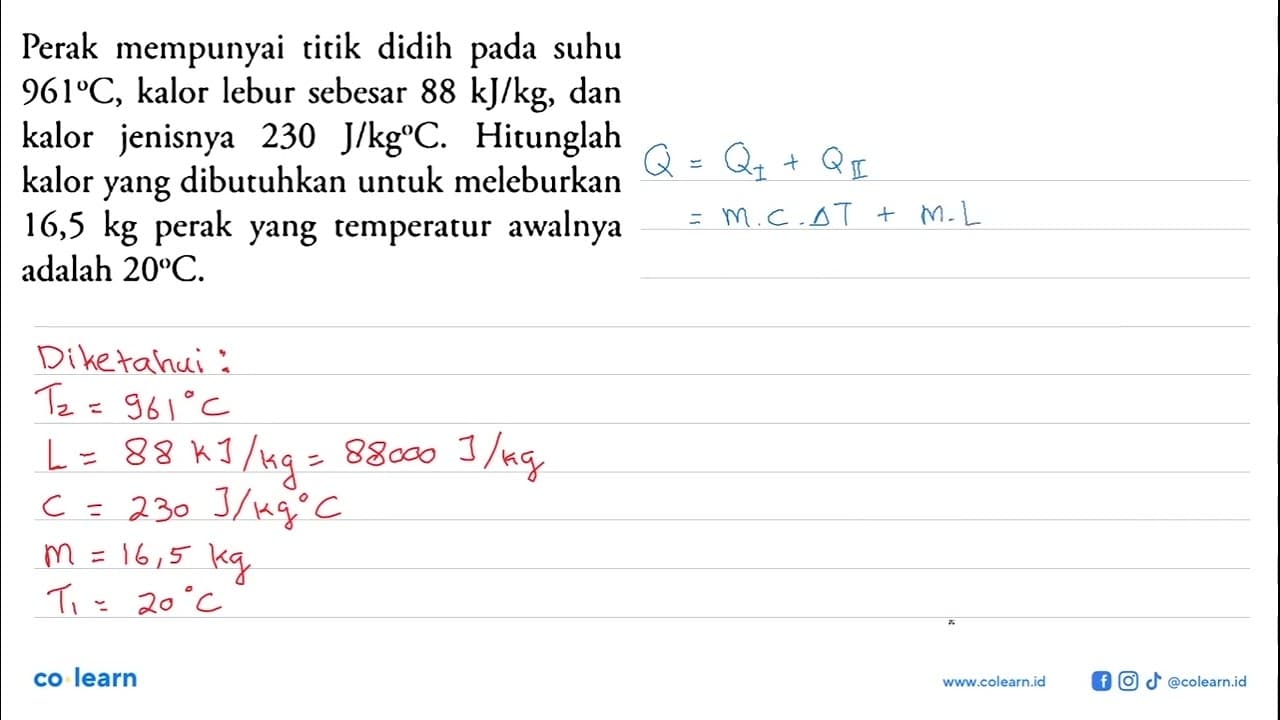 Perak mempunyai titik didih pada suhu
961°C, kalor lebur sebesar 88 kJ/kg, dan
kalor jenisnya 230 J/kg°C. Hitunglah
kalor yang dibutuhkan untuk meleburkan
16,5 kg perak yang temperatur awalnya
adalah 20°C.
Q = Q_I + Q_II
= m.c.ΔT + m.L
Diketahui:
T₂ = 961°C
L = 88 kJ/kg = 88000 J/kg
C = 230 J/kg°C
m = 16,5 kg
T₁ = 20°C
co learn
www.colearn.id
@colearn.id